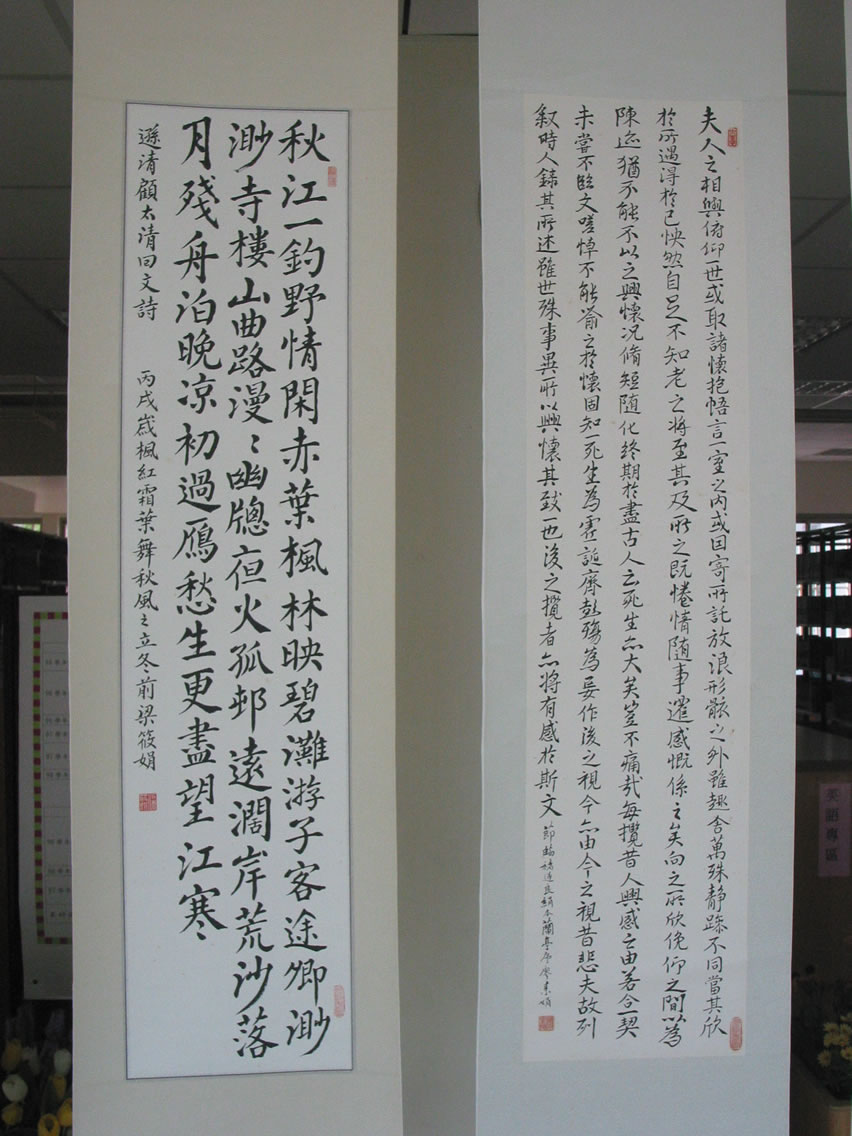 夫人之相與俯仰一世或取諸懷抱悟言一室之內或因寄所託放浪形骸之外雖趣舍萬殊静躁不同當其欣
於所遇得於己怏然自足不知老之将至其及所之既惓情随事遷感慨係之矣向之所欣俛仰之間以為
陳迹猶不能不以之興懷况脩短随化終期於盡古人云死生亦大矣豈不痛哉每攬昔人興感之由若合一契
未嘗不臨文嗟悼不能喻之於懷固知一死生為虛誕齊彭殤為妄作後之視今亦由今之視昔悲夫故列
叙時人錄其所述雖世殊事異所以興懷其致一也後之攬者亦将有感於斯文 節臨褚遂良絹本蘭亭序廖素娟
秋江一釣野情閑赤葉楓林映碧灘游子客途鄉渺
渺寺樓山曲路漫〻幽牕夜火孤邨遠濶岸荒沙落
月殘舟泊晚凉初過鴈愁生更盡望江寒
遜清顧太清回文詩 丙戌歲楓紅霜葉舞秋風之立冬前梁筱娟
英語專區